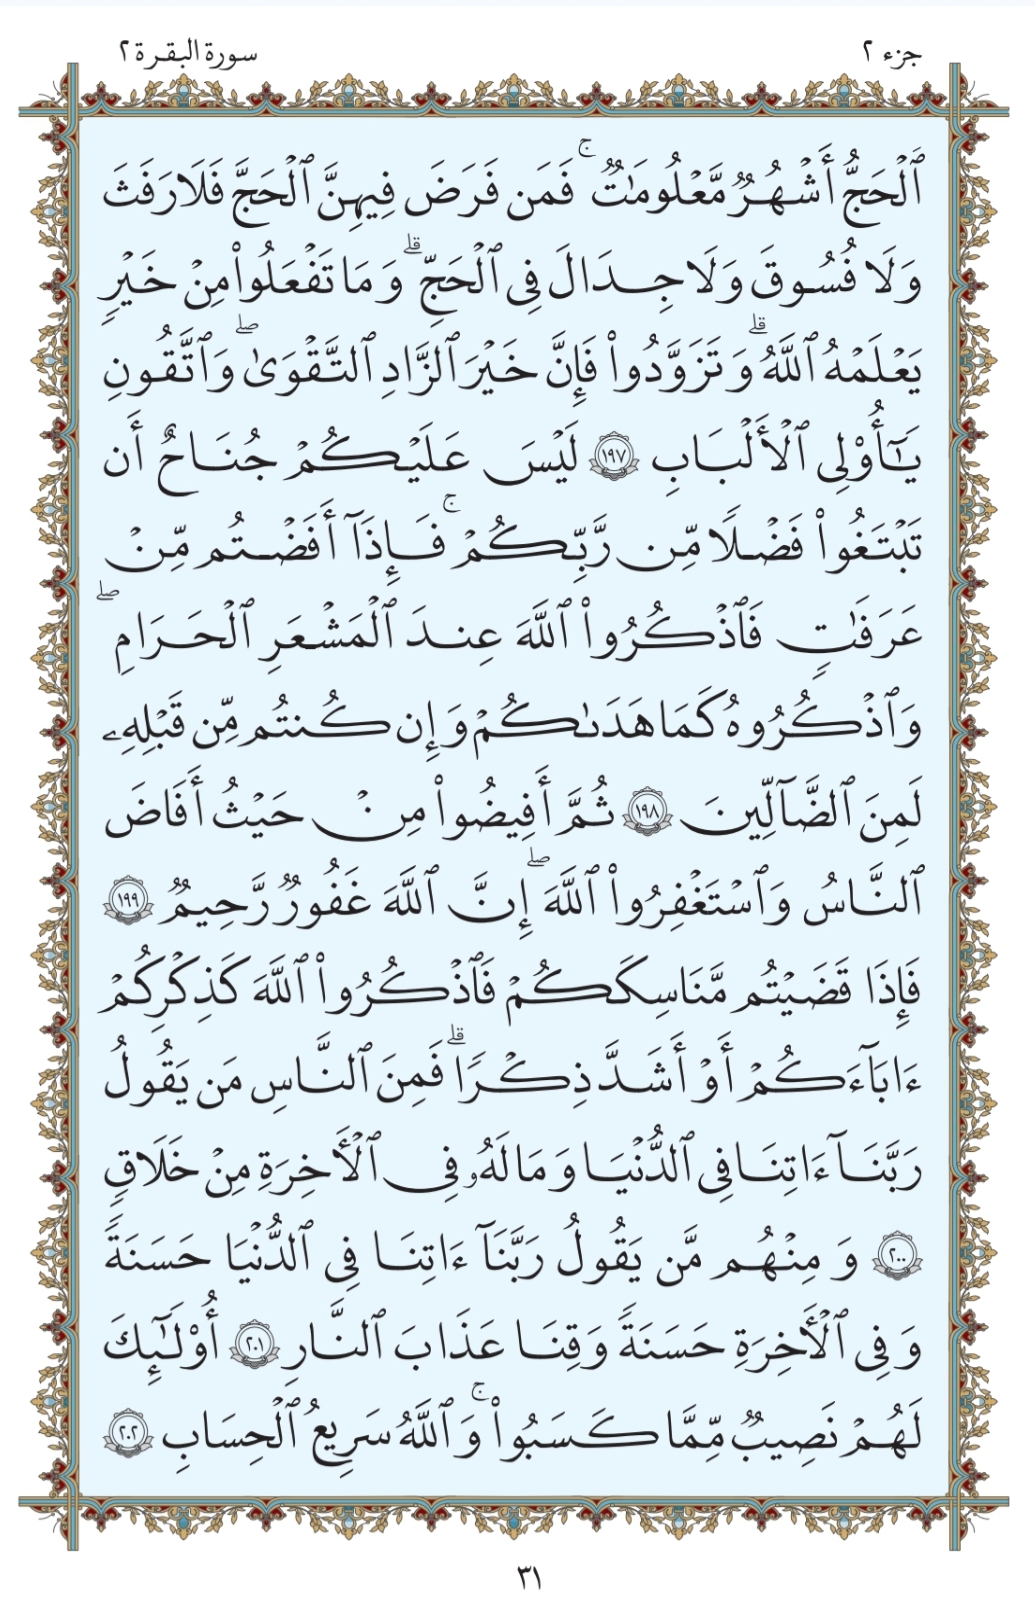 جزء ٢
سورة البقرة ٢
ٱلْحَجُّ أَشْهُرٌ مَّعْلُومَٰتٌ ۚ فَمَن فَرَضَ فِيهِنَّ ٱلْحَجَّ فَلَا رَفَثَ
وَلَا فُسُوقَ وَلَا جِدَالَ فِى ٱلْحَجِّ ۗ وَمَا تَفْعَلُوا۟ مِنْ خَيْرٍ
يَعْلَمْهُ ٱللَّهُ ۗ وَتَزَوَّدُوا۟ فَإِنَّ خَيْرَ ٱلزَّادِ ٱلتَّقْوَىٰ ۖ وَٱتَّقُونِ
يَٰٓأُو۟لِى ٱلْأَلْبَابِ ١٩٧ لَيْسَ عَلَيْكُمْ جُنَاحٌ أَن
تَبْتَغُوا۟ فَضْلًا مِّن رَّبِّكُمْ ۚ فَإِذَآ أَفَضْتُم مِّنْ
عَرَفَٰتٍ فَٱذْكُرُوا۟ ٱللَّهَ عِندَ ٱلْمَشْعَرِ ٱلْحَرَامِ ۖ
وَٱذْكُرُوهُ كَمَا هَدَىٰكُمْ وَإِن كُنتُم مِّن قَبْلِهِۦ
لَمِنَ ٱلضَّآلِّينَ ١٩٨ ثُمَّ أَفِيضُوا۟ مِنْ حَيْثُ أَفَاضَ
ٱلنَّاسُ وَٱسْتَغْفِرُوا۟ ٱللَّهَ ۖ إِنَّ ٱللَّهَ غَفُورٌ رَّحِيمٌ ١٩٩
فَإِذَا قَضَيْتُم مَّنَاسِكَكُمْ فَٱذْكُرُوا۟ ٱللَّهَ كَذِكْرِكُمْ
ءَابَآءَكُمْ أَوْ أَشَدَّ ذِكْرًا ۗ فَمِنَ ٱلنَّاسِ مَن يَقُولُ
رَبَّنَآ ءَاتِنَا فِى ٱلدُّنْيَا وَمَا لَهُۥ فِى ٱلْأَخِرَةِ مِنْ خَلَاقٍ
٢٠٠ وَمِنْهُم مَّن يَقُولُ رَبَّنَآ ءَاتِنَا فِى ٱلدُّنْيَا حَسَنَةً
وَفِى ٱلْأَخِرَةِ حَسَنَةً وَقِنَا عَذَابَ ٱلنَّارِ ٢٠١ أُو۟لَٰٓئِكَ
لَهُمْ نَصِيبٌ مِّمَّا كَسَبُوا۟ ۚ وَٱللَّهُ سَرِيعُ ٱلْحِسَابِ ٢٠٢
٣١